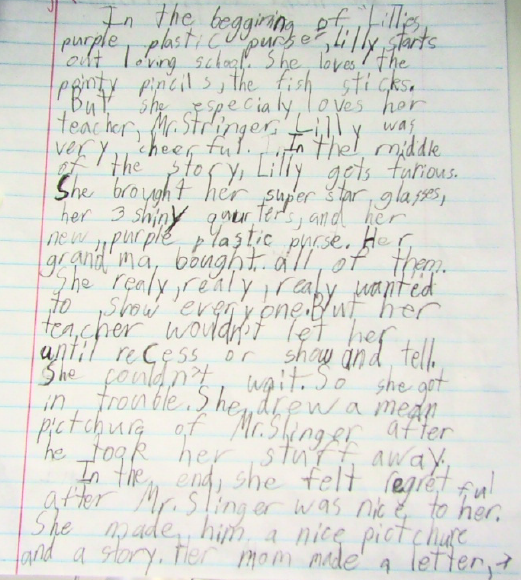 In the beggining of "Lillies
purple plastic purse, Lilly starts
out loving school. She loves the
pointy pincils, the fish sticks.
But she especialy loves her
teacher, Mr. Stringer. Lilly was
very cheerful. In the middle
of the story, Lilly gets furious.
She brought her super star glasses,
her 3 shiny quurters, and her
new purple plastic purse. Her
grandma bought all of them.
She realy, realy, realy wanted
to show everyone. But her
teacher wouldn't let her
until recess or show and tell.
She couldn't wait. So she got
in trouble. She drew a mean
pictchure of Mr. Slinger after
he took her stuff away.
In the end, she felt regretful
after Mr. Slinger was nice to her.
She made him a nice pictchure
and a story. Her mom made a letter, →